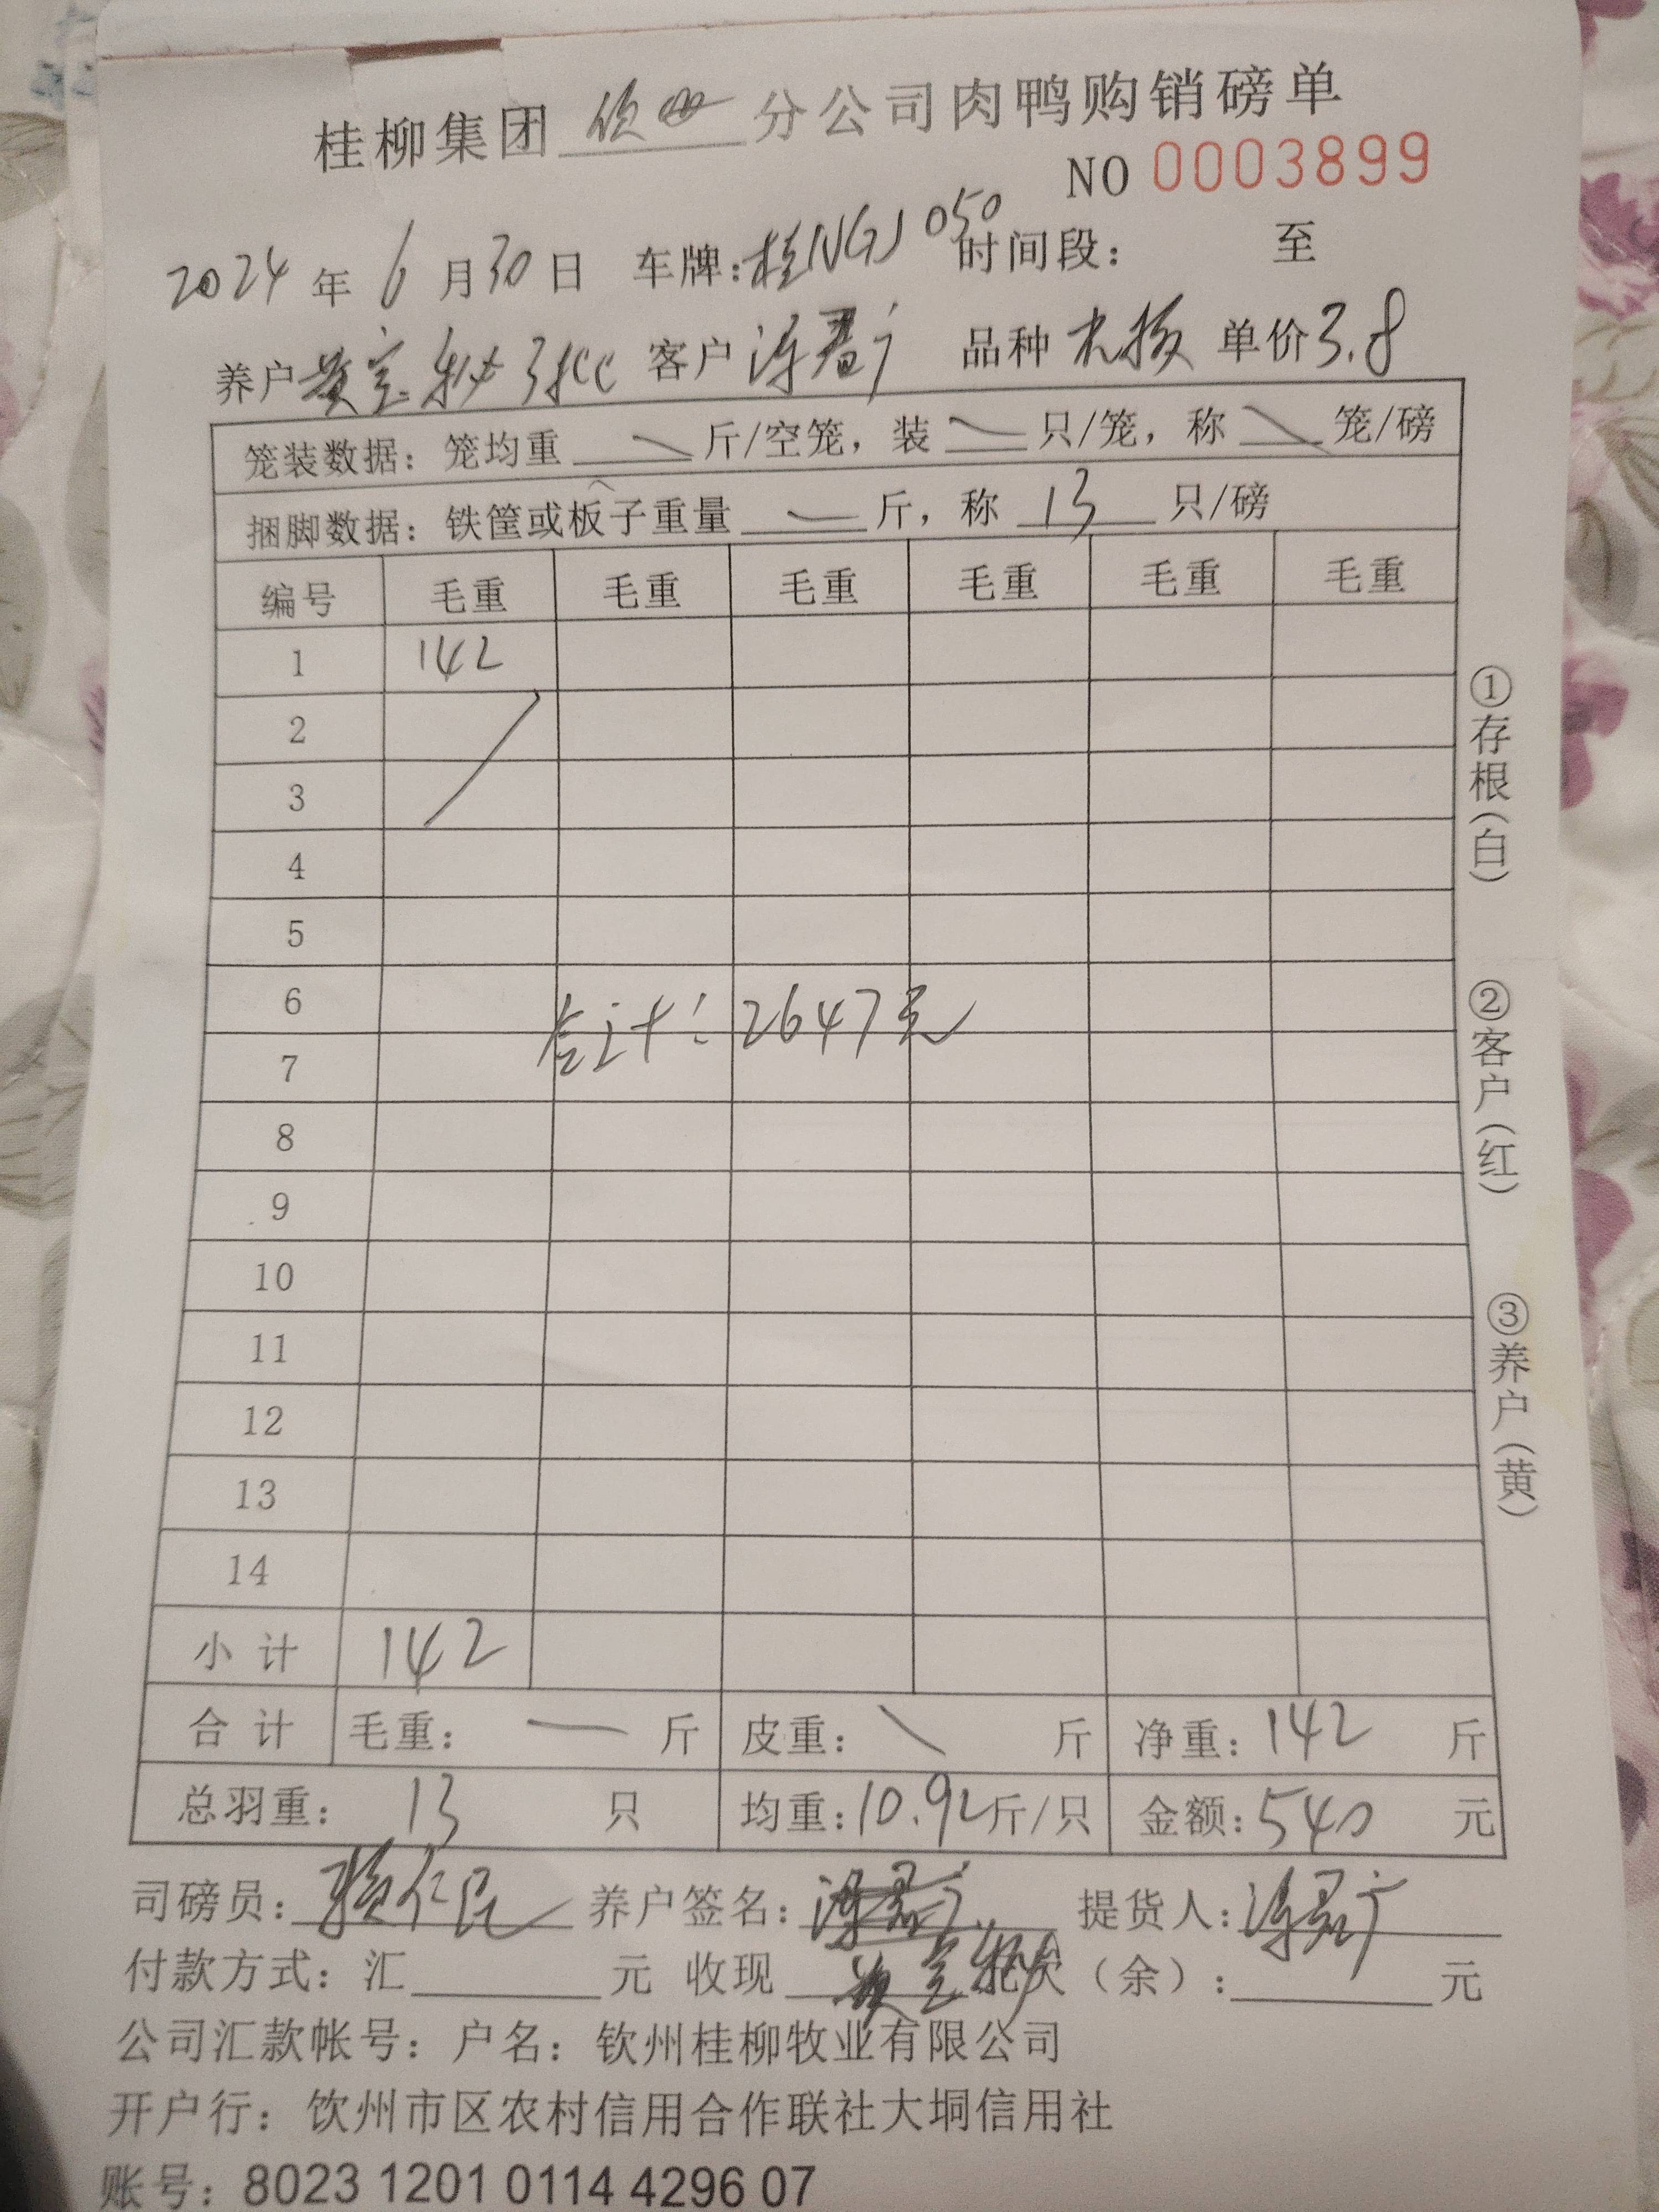 桂柳集团 分公司肉鸭购销磅单
NO 0003899
2024 年 6 月 30 日 车牌:桂NGJ050 时间段: 至
养户 黄宝 客户 品种 单价 3.8
笼装数据: 笼均重 斤/空笼, 装 只/笼, 称 笼/磅
捆脚数据: 铁筐或板子重量 一 斤, 称 13 只/磅
编号 毛重 毛重 毛重 毛重 毛重 毛重
1 142
2
3
4
5
6
合计: 2647元
7
8
9
10
11
12
13
14
小计 142
合计 毛重: 一 斤 皮重: 斤 净重: 142 斤
总羽重: 13 只 均重: 10.92 斤/只 金额: 540 元
司磅员: 仁民 养户签名: 提货人:
付款方式: 汇 元 收现 黄宝 欠(余): 元
公司汇款帐号: 户名: 钦州桂柳牧业有限公司
开户行: 饮州市区农村信用合作联社大垌信用社
账号: 8023 1201 0114 4296 07
①存根(白)
②客户(红)
③养户(黄)